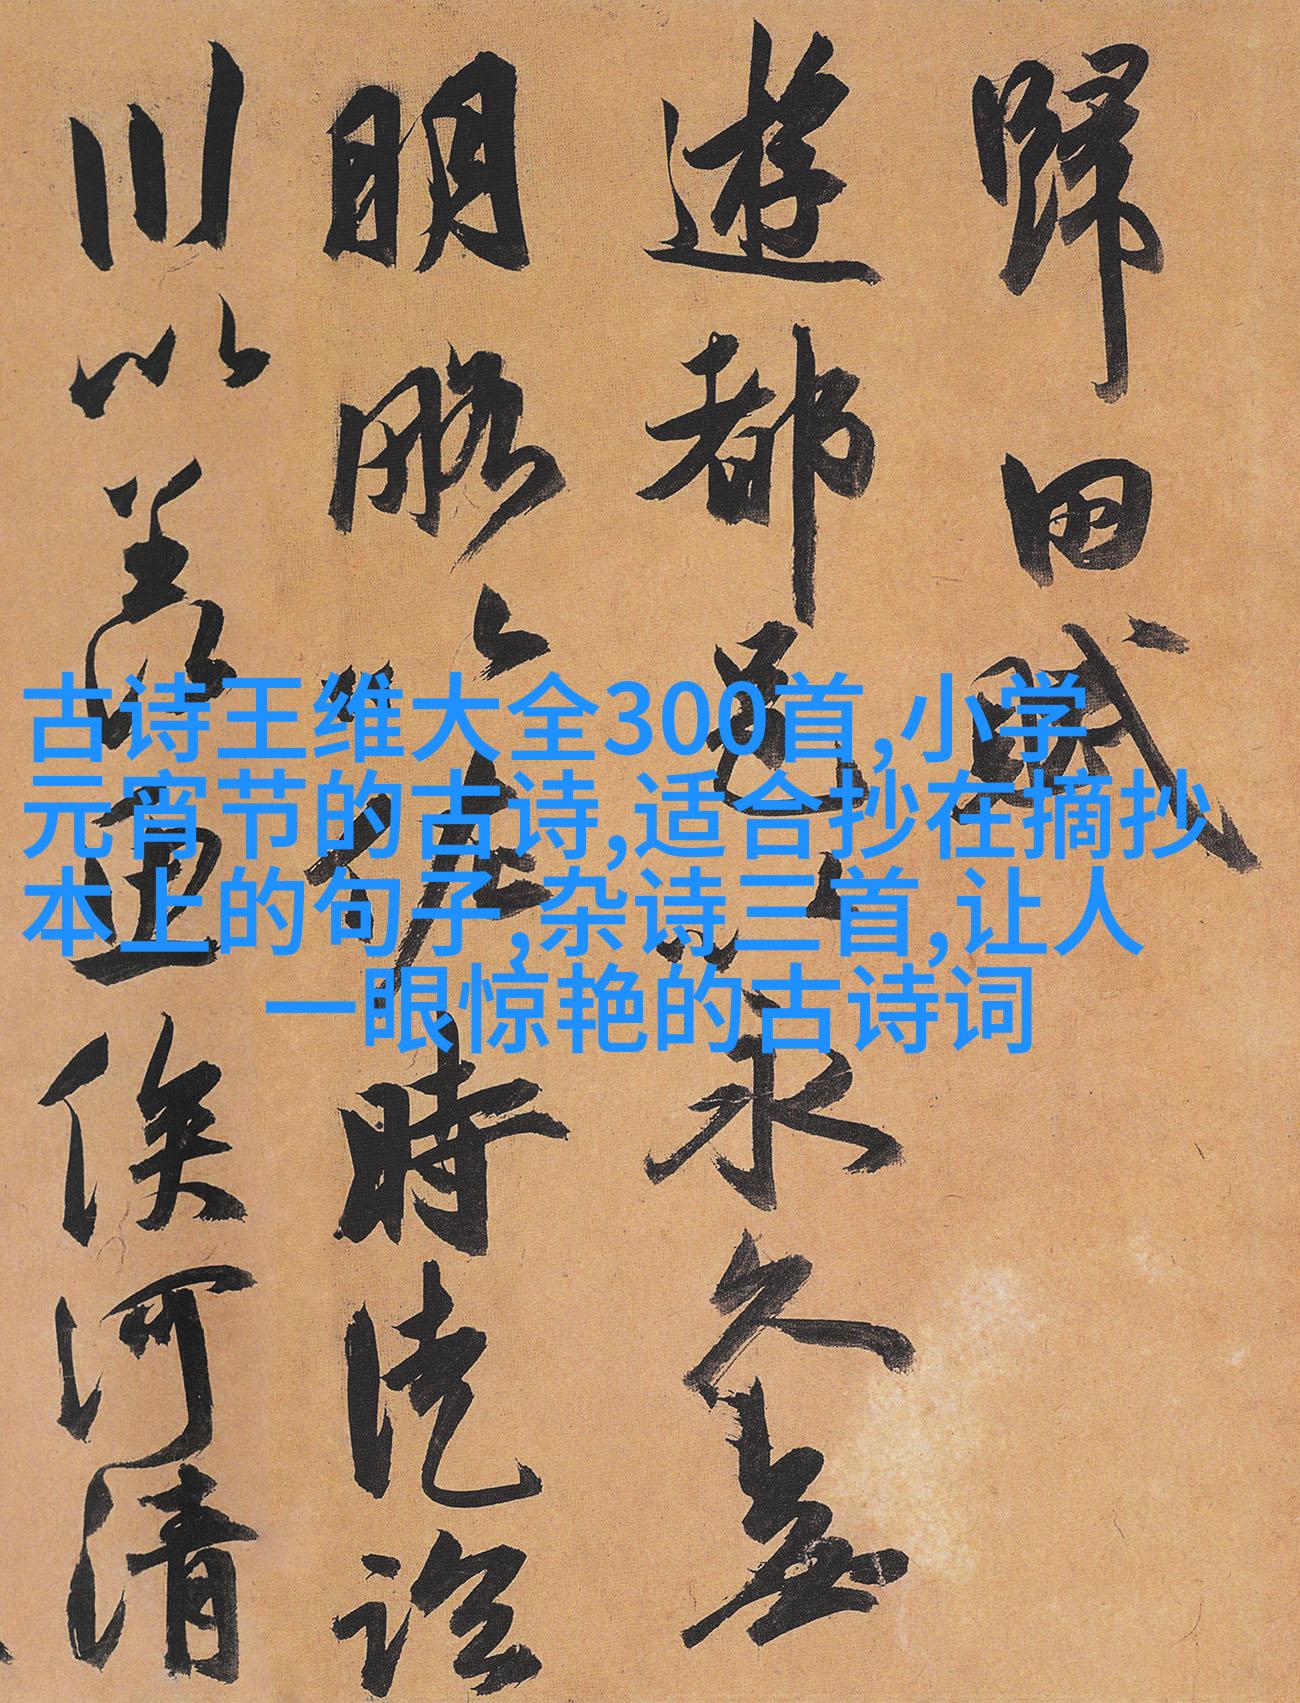 歸田賦
遊都邑以永久無
明略以佐時徒臨
川以羨魚俟河清
古诗王维大全300首,小学
元宵节的古诗,适合抄在摘抄
本上的句子,杂诗三首,让人
一眼惊艳的古诗词